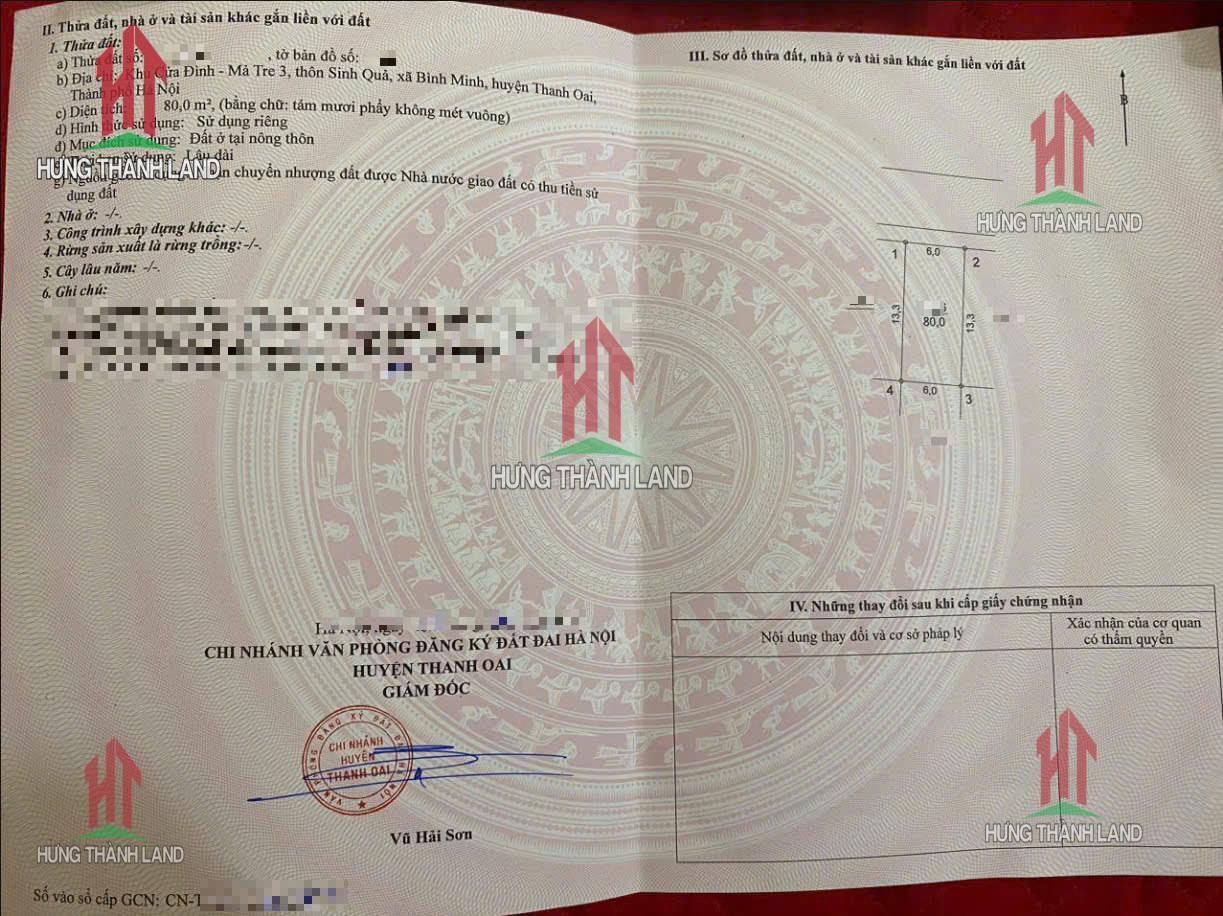 II. Thửa đất, nhà ở và tài sản khác gắn liền với đất
1. Thửa đất:
a) Thửa đất số: , tờ bản đồ số:
b) Địa chỉ: Khu Cửa Đình - Mả Tre 3, thôn Sinh Quả, xã Bình Minh, huyện Thanh Oai,
Thành phố Hà Nội
c) Diện tích: 80,0 m², (bằng chữ: tám mươi phẩy không mét vuông)
d) Hình thức sử dụng: Sử dụng riêng
đ) Mục đích sử dụng: Đất ở tại nông thôn
sử dụng: Lâu dài
g) Nguồn chuyển nhượng đất được Nhà nước giao đất có thu tiền sử
dụng đất
2. Nhà ở: -/-.
3. Công trình xây dựng khác: -/-.
4. Rừng sản xuất là rừng trồng: -/-.
5. Cây lâu năm: -/-.
6. Ghi chú:
Hà Nội, ngày
CHI NHÁNH VĂN PHÒNG ĐĂNG KÝ ĐẤT ĐAI HÀ NỘI
HUYỆN THANH OAI
GIÁM ĐỐC
VĂN PHÒNG ĐĂNG KÝ ĐẤT ĐAI HÀ NỘI
CHI NHÁNH
HUYỆN
THANH OAI
Vũ Hải Sơn
Số vào sổ cấp GCN: CN-T
III. Sơ đồ thửa đất, nhà ở và tài sản khác gắn liền với đất
B
1
6,0
2
13,3
80,0
13,3
4
6,0
3
IV. Những thay đổi sau khi cấp giấy chứng nhận
Nội dung thay đổi và cơ sở pháp lý
Xác nhận của cơ quan
có thẩm quyền
HT
HƯNG THÀNH LAND
HT
HƯNG THÀNH LAND
HT
HƯNG THÀNH LAND
HT
HƯNG THÀNH LAND
HT
HƯNG THÀNH LAND